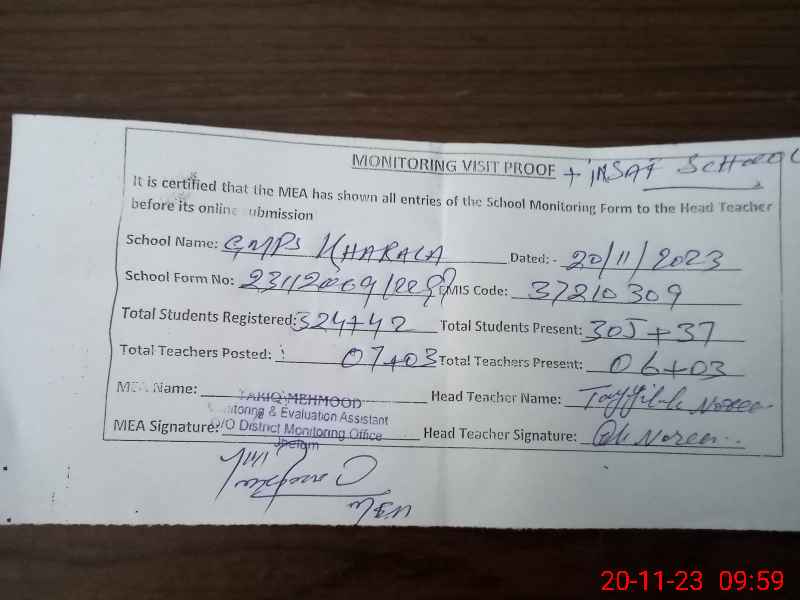 MONITORING VISIT PROOF + INSAF SCHOOL
It is certified that the MEA has shown all entries of the School Monitoring Form to the Head Teacher
before its online submission
School Name: GMPS KHARALA Dated: - 20/11/2023
School Form No: EMIS Code: 37210309
Total Students Registered: 324+42 Total Students Present: 305+37
Total Teachers Posted: 07+03 Total Teachers Present: 06+03
MEA Name: TARIQ MEHMOOD Head Teacher Name: Tayyiba Noreen
Monitoring & Evaluation Assistant
MEA Signature: O/O District Monitoring Office Head Teacher Signature: Noreen
Jhelum
20-11-23 09:59